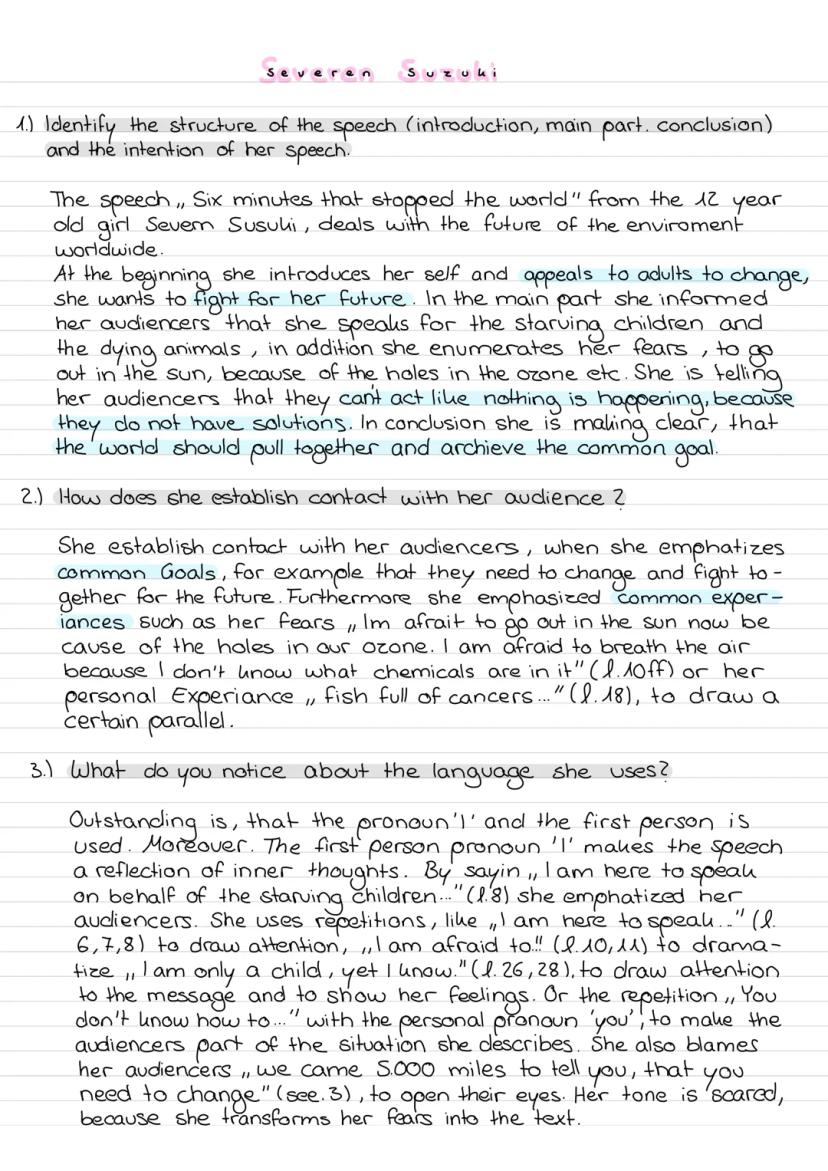 Severen Suzuki
1.) Identify the structure of the speech (introduction, main part. conclusion)
and the intention of her speech.
The speech „ Six minutes that stopped the world" from the 12 year
old girl Severn Susuki, deals with the future of the enviroment
worldwide.
At the beginning she introduces her self and appeals to adults to change,
she wants to fight for her future. In the main part she informed
her audiencers that she speaks for the starving children and
the dying animals, in addition she enumerates her fears, to go
out in the sun, because of the holes in the ozone etc. She is telling
her audiencers that they can't act like nothing is happening, because
they do not have solutions. In conclusion she is making clear, that
the world should pull together and archieve the common goal.
2.) How does she establish contact with her audience?
She establish contact with her audiencers, when she emphatizes
common Goals, for example that they need to change and fight to-
gether for the future. Furthermore she emphasized common exper-
iances such as her fears „ Im afrait to go out in the sun now be
cause of the holes in our ozone. I am afraid to breath the air
because I don't know what chemicals are in it" (l.10ff) or her
personal Experiance „ fish full of cancers..." (l.18), to draw a
certain parallel.
3.) What do you notice about the language she uses?
Outstanding is, that the pronoun 'I' and the first person is
used. Moreover. The first person pronoun 'I' makes the speech
a reflection of inner thoughts. By sayin „ I am here to speak
on behalf of the starving children..." (l.8) she emphatized her
audiencers. She uses repetitions, like „I am here to speak..." (l.
6,7,8) to draw attention, „I am afraid to.." (l.10,11) to drama-
tize „ I am only a child, yet I know." (l.26,28), to draw attention
to the message and to show her feelings. Or the repetition „ You
don't know how to..." with the personal pronoun 'you', to make the
audiencers part of the situation she describes. She also blames
her audiencers „ we came 5.000 miles to tell you, that you
need to change" (see.3), to open their eyes. Her tone is scared,
because she transforms her fears into the text.